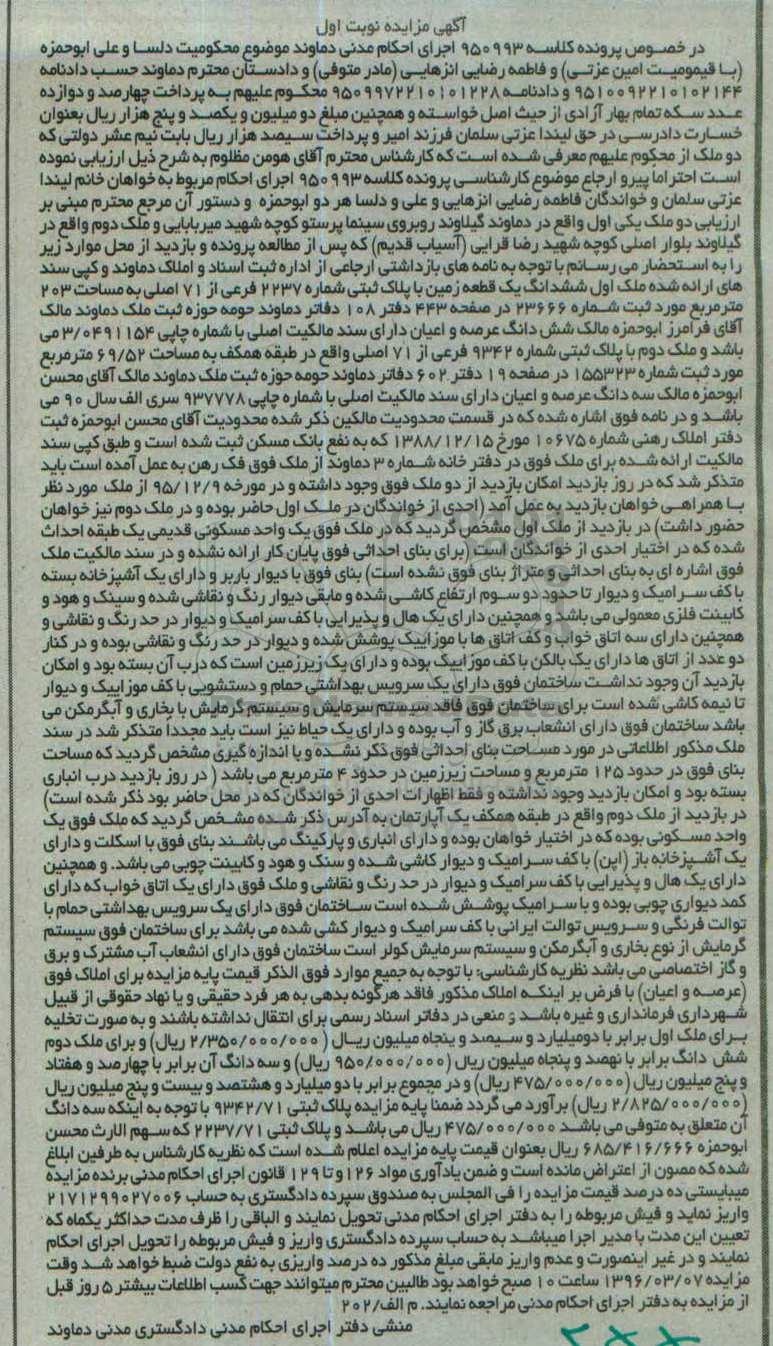 آگهی مزایده نوبت اول
در خصوص پرونده کلاسه ۹۵۰۹۹۳ اجرای احکام مدنی دماوند موضوع محکومیت دلسا و علی ابوحمزه
(با قیمومیت امین عزتی) و فاطمه رضایی انزهایی (مادر متوفی) و دادستان محترم دماوند حسب دادنامه
۹۵۱۰۰۹۲۲۱۰۱۰۲۱۴۴ و دادنامه ۹۵۰۹۹۷۲۲۱۰۱۰۱۲۲۸ محکوم علیهم به پرداخت چهارصد و دوازده
عدد سکه تمام بهار آزادی از حیث اصل خواسته و همچنین مبلغ دو میلیون و یکصد و پنج هزار ریال بعنوان
خسارت دادرسی در حق لیندا عزتی سلمان فرزند امیر و پرداخت سیصد هزار ریال بابت نیم عشر دولتی که
دو ملک از محکوم علیهم معرفی شده است که کارشناس محترم آقای هومن مظلوم به شرح ذیل ارزیابی نموده
است احتراما پیرو ارجاع موضوع کارشناسی پرونده کلاسه ۹۵۰۹۹۳ اجرای احکام مربوط به خواهان خانم لیندا
عزتی سلمان و خواندگان فاطمه رضایی انزهایی و علی و دلسا هر دو ابوحمزه و دستور آن مرجع محترم مبنی بر
ارزیابی دو ملک یکی اول واقع در دماوند گیلاوند روبروی سینما پرستو کوچه شهید میربابایی و ملک دوم واقع در
گیلاوند بلوار اصلی کوچه شهید رضا قرایی (آسیاب قدیم) که پس از مطالعه پرونده و بازدید از محل موارد زیر
را به استحضار می رسانم با توجه به نامه های بازداشتی ارجاعی از اداره ثبت اسناد و املاک دماوند و کپی سند
های ارائه شده ملک اول ششدانگ یک قطعه زمین با پلاک ثبتی شماره ۲۲۳۷ فرعی از ۷۱ اصلی به مساحت ۲۰۳
مترمربع مورد ثبت شماره ۲۳۶۶۶ در صفحه ۴۴۳ دفتر ۱۰۸ دفاتر دماوند حومه حوزه ثبت ملک دماوند مالک
آقای فرامرز ابوحمزه مالک شش دانگ عرصه و اعیان دارای سند مالکیت اصلی با شماره چاپی ۳/۰۴۹۱۱۵۴ می
باشد و ملک دوم با پلاک ثبتی شماره ۹۳۴۲ فرعی از ۷۱ اصلی واقع در طبقه همکف به مساحت ۶۹/۵۲ مترمربع
مورد ثبت شماره ۱۵۵۳۲۳ در صفحه ۱۹ دفتر ۶۰۲ دفاتر دماوند حومه حوزه ثبت ملک دماوند مالک آقای محسن
ابوحمزه مالک سه دانگ عرصه و اعیان دارای سند مالکیت اصلی با شماره چاپی ۹۳۷۷۷۸ سری الف سال ۹۰ می
باشد و در نامه فوق اشاره شده که در قسمت محدودیت مالکین ذکر شده محدودیت آقای محسن ابوحمزه ثبت
دفتر املاک رهنی شماره ۱۰۶۷۵ مورخ ۱۳۸۸/۱۲/۱۵ که به نفع بانک مسکن ثبت شده است و طبق کپی سند
مالکیت ارائه شده برای ملک فوق در دفتر خانه شماره ۳ دماوند از ملک فوق فک رهن به عمل آمده است باید
متذکر شد که در روز بازدید امکان بازدید از دو ملک فوق وجود داشته و در مورخه ۹۵/۱۲/۹ از ملک مورد نظر
با همراهی خواهان بازدید به عمل آمد (احدی از خواندگان در ملک اول حاضر بوده و در ملک دوم نیز خواهان
حضور داشت) در بازدید از ملک اول مشخص گردید که در ملک فوق یک واحد مسکونی قدیمی یک طبقه احداث
شده که در اختیار احدی از خواندگان است (برای بنای احداثی فوق پایان کار ارائه نشده و در سند مالکیت ملک
فوق اشاره ای به بنای احداثی و متراژ بنای فوق نشده است) بنای فوق با دیوار باربر و دارای یک آشپزخانه بسته
با کف سرامیک و دیوار تا حدود دو سوم ارتفاع کاشی شده و مابقی دیوار رنگ و نقاشی شده و سینک و هود و
کابینت فلزی معمولی می باشد و همچنین دارای یک هال و پذیرایی با کف سرامیک و دیوار در حد رنگ و نقاشی و
همچنین دارای سه اتاق خواب و کف اتاق ها با موزاییک پوشش شده و دیوار در حد رنگ و نقاشی بوده و در کنار
دو عدد از اتاق ها دارای یک بالکن با کف موزاییک بوده و دارای یک زیرزمین است که درب آن بسته بود و امکان
بازدید آن وجود نداشت ساختمان فوق دارای یک سرویس بهداشتی حمام و دستشویی با کف موزاییک و دیوار
تا نیمه کاشی شده است برای ساختمان فوق فاقد سیستم سرمایش و سیستم گرمایش با بخاری و آبگرمکن می
باشد ساختمان فوق دارای انشعاب برق گاز و آب بوده و دارای یک حیاط نیز است باید مجدداً متذکر شد در سند
ملک مذکور اطلاعاتی در مورد مساحت بنای احداثی فوق ذکر نشده و با اندازه گیری مشخص گردید که مساحت
بنای فوق در حدود ۱۲۵ مترمربع و مساحت زیرزمین در حدود ۴ مترمربع می باشد ( در روز بازدید درب انباری
بسته بود و امکان بازدید وجود نداشته و فقط اظهارات احدی از خواندگان که در محل حاضر بود ذکر شده است)
در بازدید از ملک دوم واقع در طبقه همکف یک آپارتمان به آدرس ذکر شده مشخص گردید که ملک فوق یک
واحد مسکونی بوده که در اختیار خواهان بوده و دارای انباری و پارکینگ می باشند بنای فوق با اسکلت و دارای
یک آشپزخانه باز (اپن) با کف سرامیک و دیوار کاشی شده و سنک و هود و کابینت چوبی می باشد. و همچنین
دارای یک هال و پذیرایی با کف سرامیک و دیوار در حد رنگ و نقاشی و ملک فوق دارای یک اتاق خواب که دارای
کمد دیواری چوبی بوده و با سرامیک پوشش شده است ساختمان فوق دارای یک سرویس بهداشتی حمام با
توالت فرنگی و سرویس توالت ایرانی با کف سرامیک و دیوار کشی شده می باشد برای ساختمان فوق سیستم
گرمایش از نوع بخاری و آبگرمکن و سیستم سرمایش کولر است ساختمان فوق دارای انشعاب آب مشترک و برق
و گاز اختصاصی می باشد نظریه کارشناسی: با توجه به جمیع موارد فوق الذکر قیمت پایه مزایده برای املاک فوق
(عرصه و اعیان) با فرض بر اینکه املاک مذکور فاقد هرگونه بدهی به هر فرد حقیقی و یا نهاد حقوقی از قبیل
شهرداری فرمانداری و غیره باشد و منعی در دفاتر اسناد رسمی برای انتقال نداشته باشند و به صورت تخلیه
برای ملک اول برابر با دومیلیارد و سیصد و پنجاه میلیون ریال (۲/۳۵۰/۰۰۰/۰۰۰ ریال) و برای ملک دوم
شش دانگ برابر با نهصد و پنجاه میلیون ریال (۹۵۰/۰۰۰/۰۰۰ ریال) و سه دانگ آن برابر با چهارصد و هفتاد
و پنج میلیون ریال (۴۷۵/۰۰۰/۰۰۰ ریال) و در مجموع برابر با دو میلیارد و هشتصد و بیست و پنج میلیون ریال
(۲/۸۲۵/۰۰۰/۰۰۰ ریال) برآورد می گردد ضمنا پایه مزایده پلاک ثبتی ۹۳۴۲/۷۱ با توجه به اینکه سه دانگ
آن متعلق به متوفی می باشد ۴۷۵/۰۰۰/۰۰۰ ریال می باشد و پلاک ثبتی ۲۲۳۷/۷۱ که سهم الارث محسن
ابوحمزه ۶۸۵/۴۱۶/۶۶۶ ریال بعنوان قیمت پایه مزایده اعلام شده است که نظریه کارشناس به طرفین ابلاغ
شده که مصون از اعتراض مانده است و ضمن یادآوری مواد ۱۲۶ و تا ۱۲۹ قانون اجرای احکام مدنی برنده مزایده
میبایستی ده درصد قیمت مزایده را فی المجلس به صندوق سپرده دادگستری به حساب ۲۱۷۱۲۹۹۰۲۷۰۰۶
واریز نماید و فیش مربوطه را به دفتر اجرای احکام مدنی تحویل نمایند و الباقی را ظرف مدت حداکثر یکماه که
تعیین این مدت با مدیر اجرا میباشد به حساب سپرده دادگستری واریز و فیش مربوطه را تحویل اجرای احکام
نمایند و در غیر اینصورت و عدم واریز مابقی مبلغ مذکور ده درصد واریزی به نفع دولت ضبط خواهد شد وقت
مزایده ۱۳۹۶/۰۳/۰۷ ساعت ۱۰ صبح خواهد بود طالبین محترم میتوانند جهت کسب اطلاعات بیشتر ۵ روز قبل
از مزایده به دفتر اجرای احکام مدنی مراجعه نمایند. م الف/۲۰۲
منشی دفتر اجرای احکام مدنی دادگستری مدنی دماوند